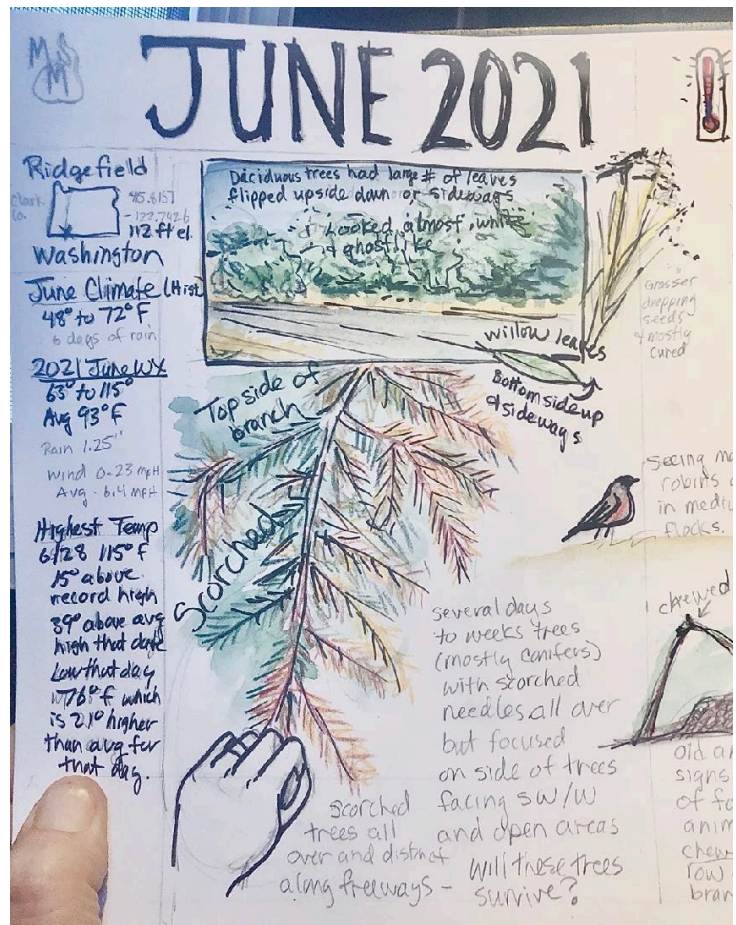 MSM
JUNE 2021
Ridgefield
Clark
Co.
45.8151
-122.7426
112 ft el.
Washington
June Climate (Hist)
48° to 72°F
6 days of rain
2021 June WX
63° to 115°
Avg 93°F
Rain 1.25"
Wind 0-23 mpH
Avg - 6.4 mpH
Highest Temp
6/28 115°F
15° above
record high
39° above avg
high that date
Low that day
76°F which
is 21° higher
than avg for
that day.
Deciduous trees had large # of leaves
flipped upside down or sideways
Looked almost white
& ghostlike
willow leaves
Bottom side up
& sideways
Grasses
dropping
seeds
& mostly
cured
Top side of
branch
Scorched
seeing
robins
in
flocks.
several days
to weeks trees
(mostly conifers)
with scorched
needles all over
but focused
on side of trees
facing SW/W
and open areas
will these trees
survive?
scorched
trees all
over and distinct
along freeways -
chewed
old
signs
of
row